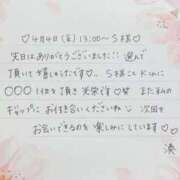 ♡4月4日(金)13:00〜 S様♡
先日はありがとうございました!! 選んで
頂いて嬉しかったです♡.. S様ことKunに
〇〇〇 1号を頂き光栄です♡ また私の
ギャップに お付き合いくださいね♪ 次回も
お会いできるのを 楽しみにしています♡
湊